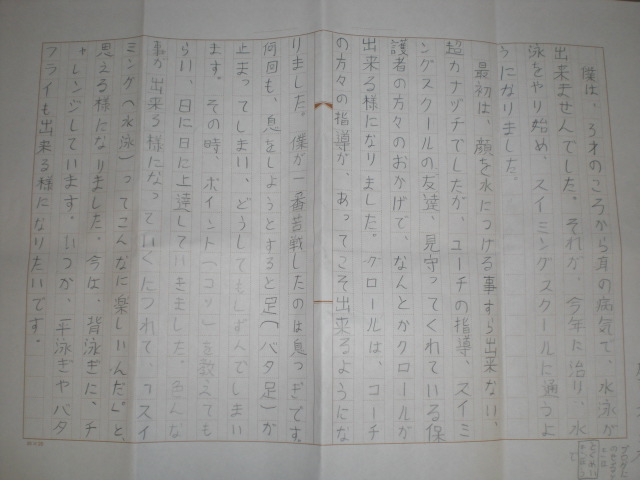 僕は、3才のころから耳の病気で、水泳が
出来ませんでした。それが、今年に治り、水
泳をやり始め、スイミングスクールに通うよ
うになりました。
最初は、顔を水につける事すら出来ない、
超カナヅチでしたが、コーチの指導、スイミ
ングスクールの友達、見守ってくれている保
護者の方々のおかげで、なんとかクロールが
出来る様になりました。クロールは、コーチ
の方々の指導が、あってこそ出来るようにな
りました。僕が一番苦戦したのは息つぎです。
何回も、息をしようとすると足(バタ足)が
止まってしまい、どうしてもしずんでしまい
ます。その時、ポイント(コツ)を教えても
らい、日に日に上達していきました。色んな
事が出来る様になっていくにつれて、「スイ
ミング(水泳)ってこんなに楽しいんだ。」と
思える様になりました。今は、背泳ぎに、チ
ャレンジしています。いつか、平泳ぎやバタ
フライも出来る様になりたいです。